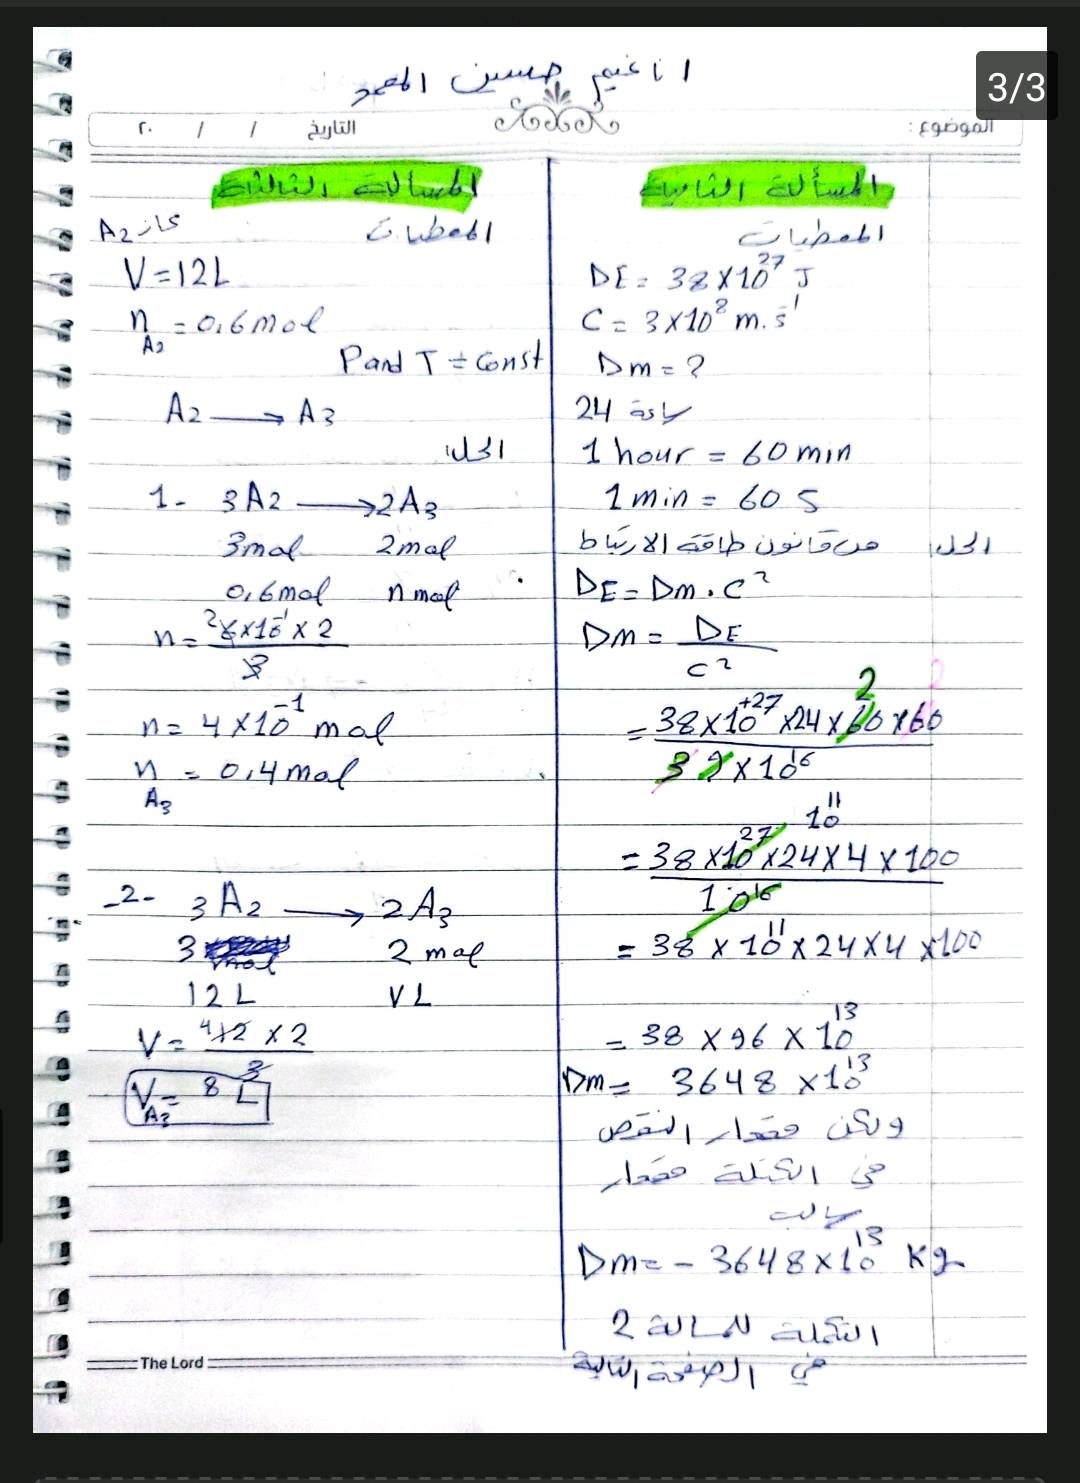 3/3
انا غيم حسين المحمد
الموضوع :
التاريخ / / ٢٠
المسألة الثانية
المعطيات
DE = 38 × 10²⁷ J
C = 3 × 10⁸ m.s⁻¹
Dm = ?
24 ساعة
1 hour = 60 min
1 min = 60 S
الحل: من قانون طاقة الارتباط
DE = Dm . C²
Dm = DE / C²
= 38×10⁺²⁷ ×24×60×60 / 9×10¹⁶
2 2
3 3
10¹¹
= 38×10²⁷×24×4×100 / 10¹⁶
= 38 × 10¹¹ × 24 × 4 × 100
= 38 × 96 × 10¹³
Dm = 3648 × 10¹³
ولكن مقدار النقص
في الكتلة مقدار
سالب
Dm = - 3648 × 10¹³ Kg
التكملة للمسالة 2
في الصفحة التالية
المسألة الثالثة
المعطيات
غاز A₂
V = 12 L
n A₂ = 0,6 mol
P and T = Const
A₂ → A₃
الحل:
1- 3A₂ → 2A₃
3mol 2mol
0,6mol n mol
n = 6×10⁻¹ × 2 / 3
2
n = 4 × 10⁻¹ mol
n A₃ = 0,4 mol
-2- 3A₂ → 2A₃
3 mol 2 mol
12 L V L
V = 12 × 2 / 3
4
V A₃ = 8 L
The Lord